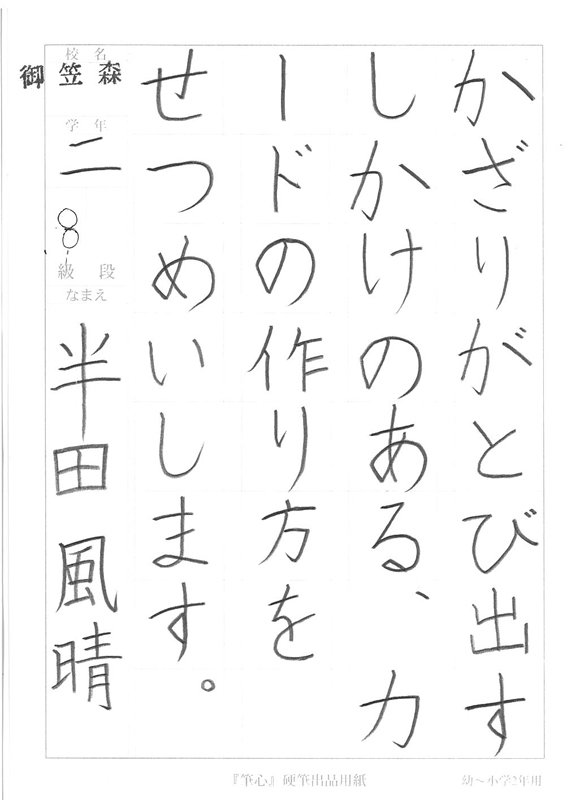 かざりがとび出す
しかけのある、カ
ードの作り方を
せつめいします。
校名
御笠森
学年
二
8
級段
なまえ
半田風晴
『筆心』硬筆出品用紙
幼～小学2年用